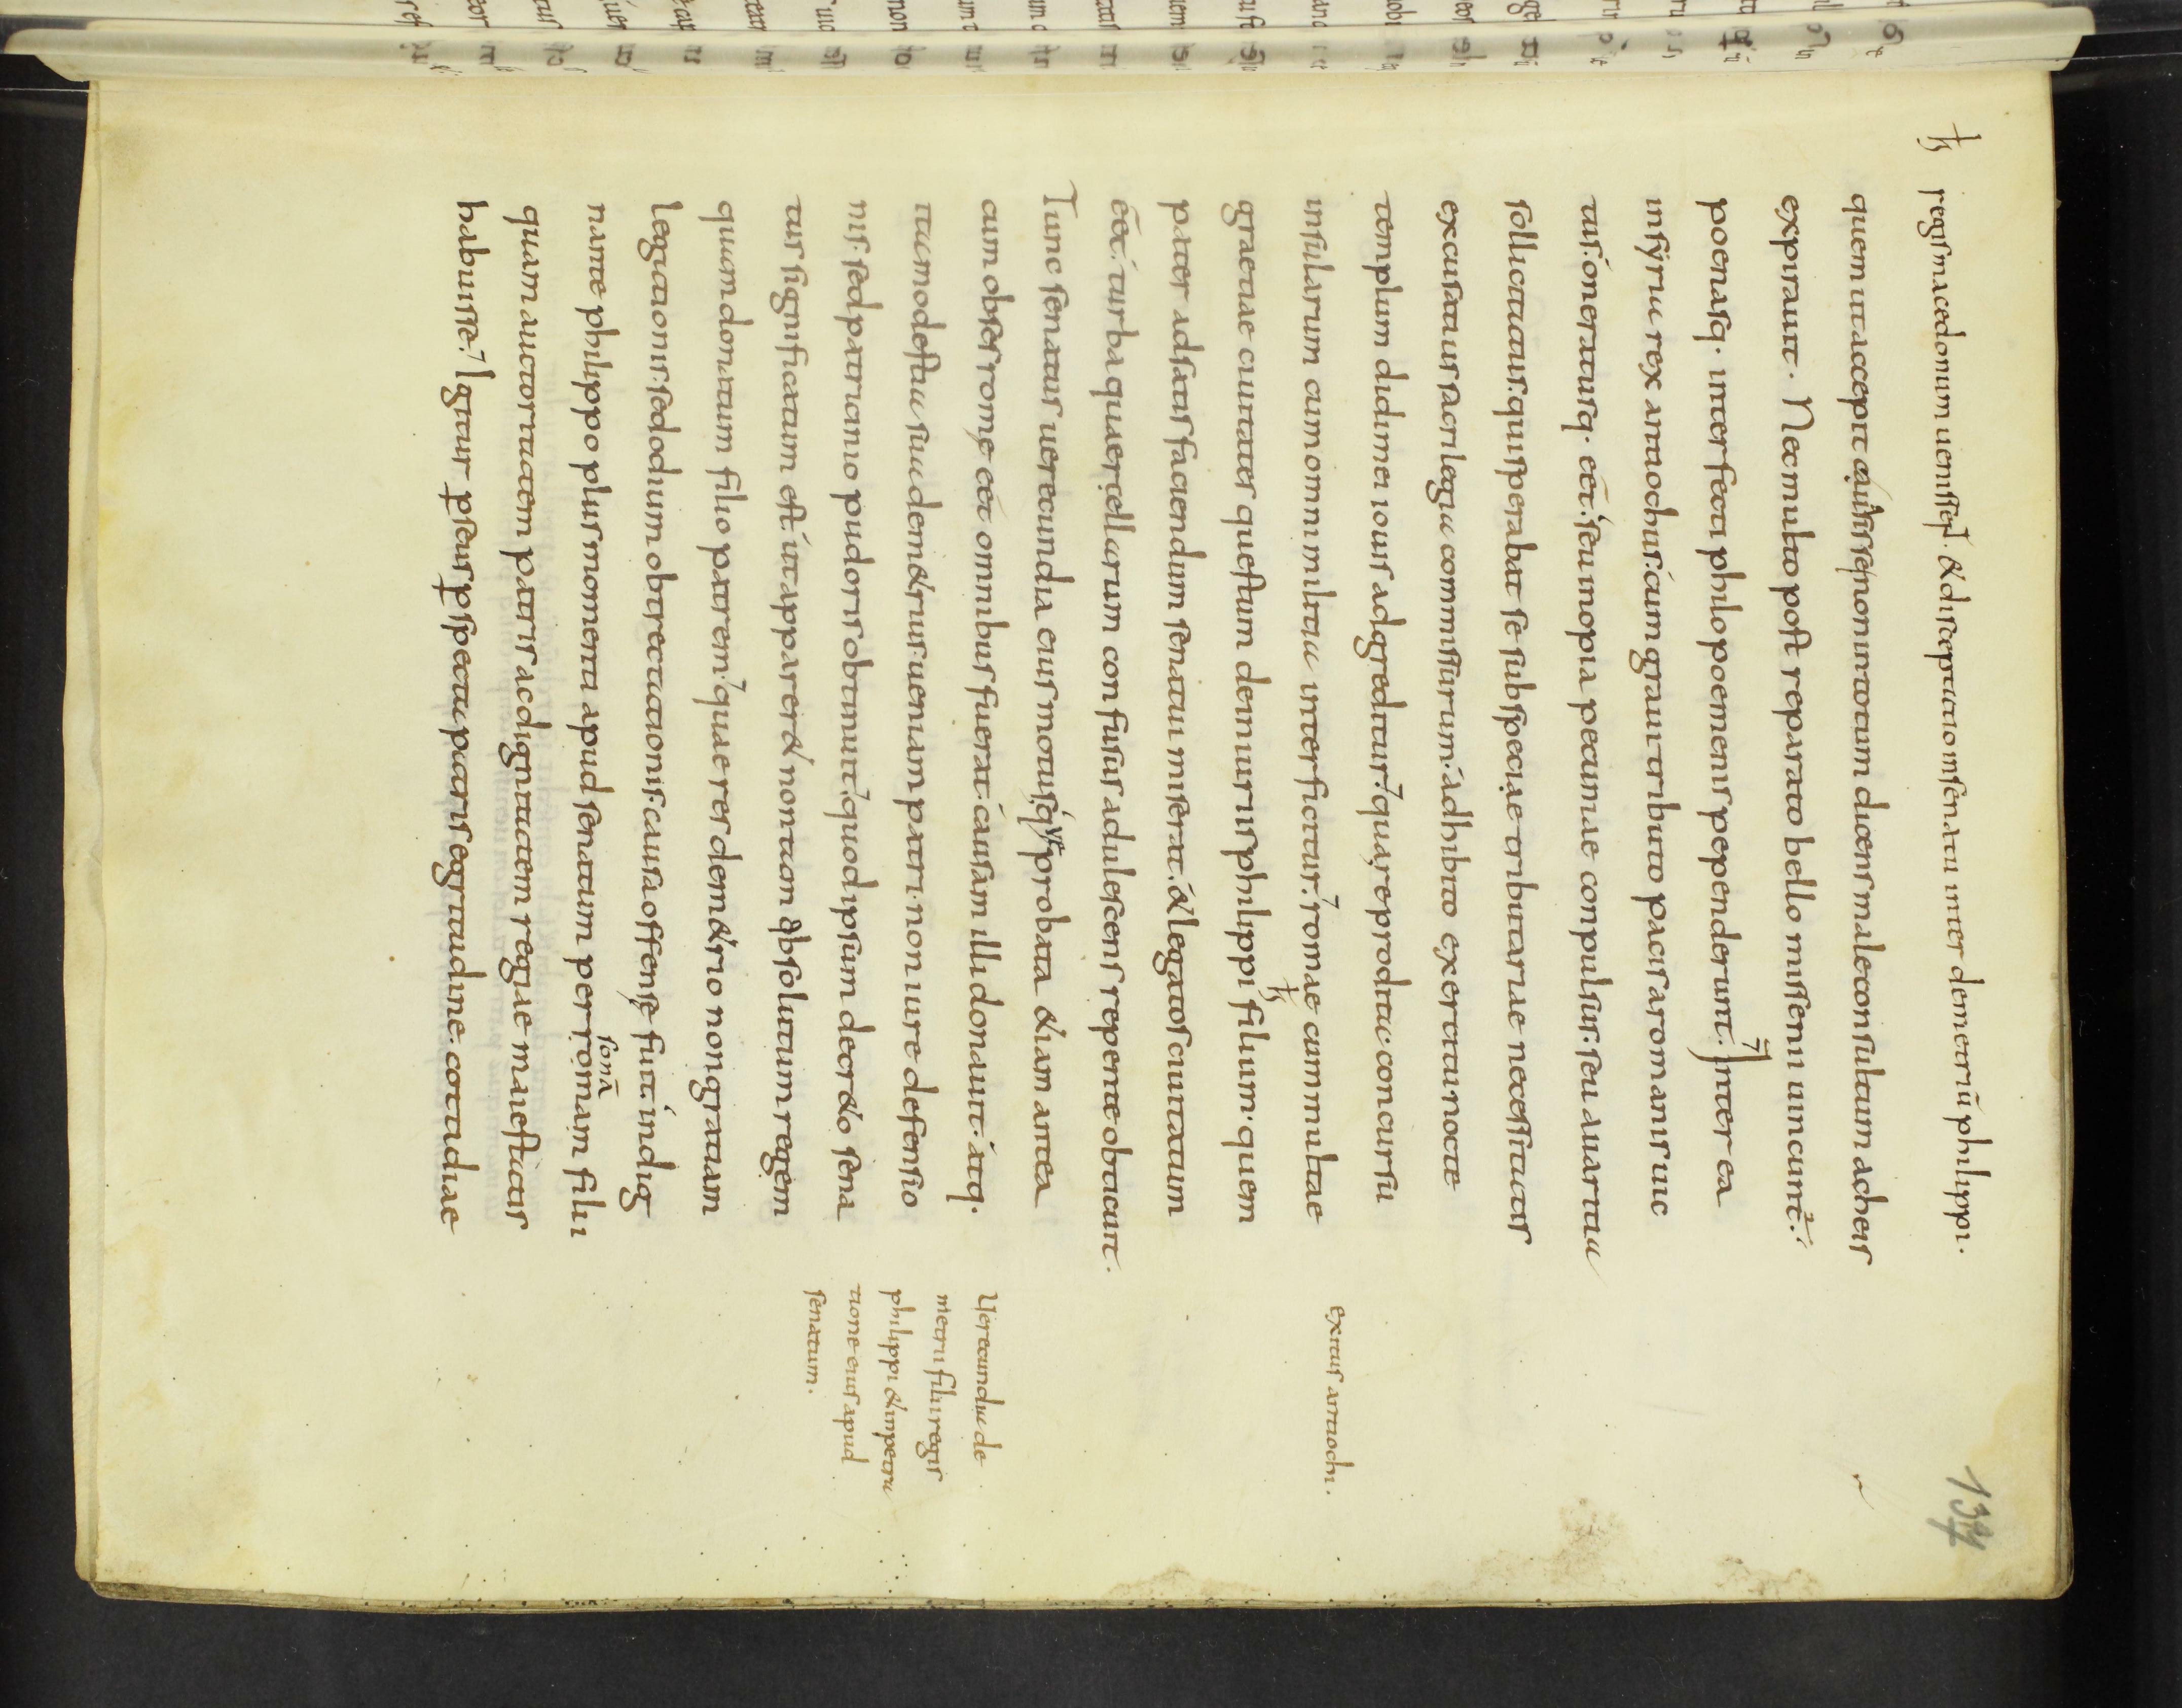 regis macedonum uenisset. & disceptatio in senatu inter demetriū philippi.
quem ut accepit euasisse non in totum dicens male consultum acheis
expirauit. Nec multo post reparato bello messenii uincunt͛.
poenasq· interfecti philopoemenis pependerunt. Inter ea
in syria rex antiochus. cum graui tributo pacis a romanis uic
tus. oneratusq· eēt. seu inopia pecuniae conpulsus. seu auaritia
sollicitatus. qui sperabat se sub specię tributariae necessitatis
excusatius sacrilegia commissurum. adhibito exercitu. nocte
templum didimei iouis adgreditur. quare prodita. concursu
insularum cum omni militia interficitur. romae cum multae
graetiae ciuitates questum de iniuriis philippi filium. quem
pater ad satis faciendum senatui miserat. & legatos ciuitatum
eēt. turba quaerellarum confusus adulescens repente obticuit.
Tunc senatus uerecundia eius motus. quę probata &iam antea
cum obses romę eēt omnibus fuerat. causam illi donauit. atq·
ita modestia sua dem&rius. ueniam patri. non iure defensio
nis. sed patricinio pudoris obtinuit. quod ipsum decr&o sena
tus significatum est. ut apparer& non tion absolutum regem
quum donatum filio patrem. quae res dem&rio non gratiam
legationis. sed odium obtrectationis. causa offensę fuit. indig
nante philippo plus momenti apud senatum personā filii
quam auctoritatem patris ac dignitatem regiae maiestatis
habuisse. Igitur ꝑseus ꝑspecta patris egritudine. cottidiae
exitus antiochi.
Uerecundia de
metrii filii regis
philippi & inpetra
tione eius apud
senatum.
137